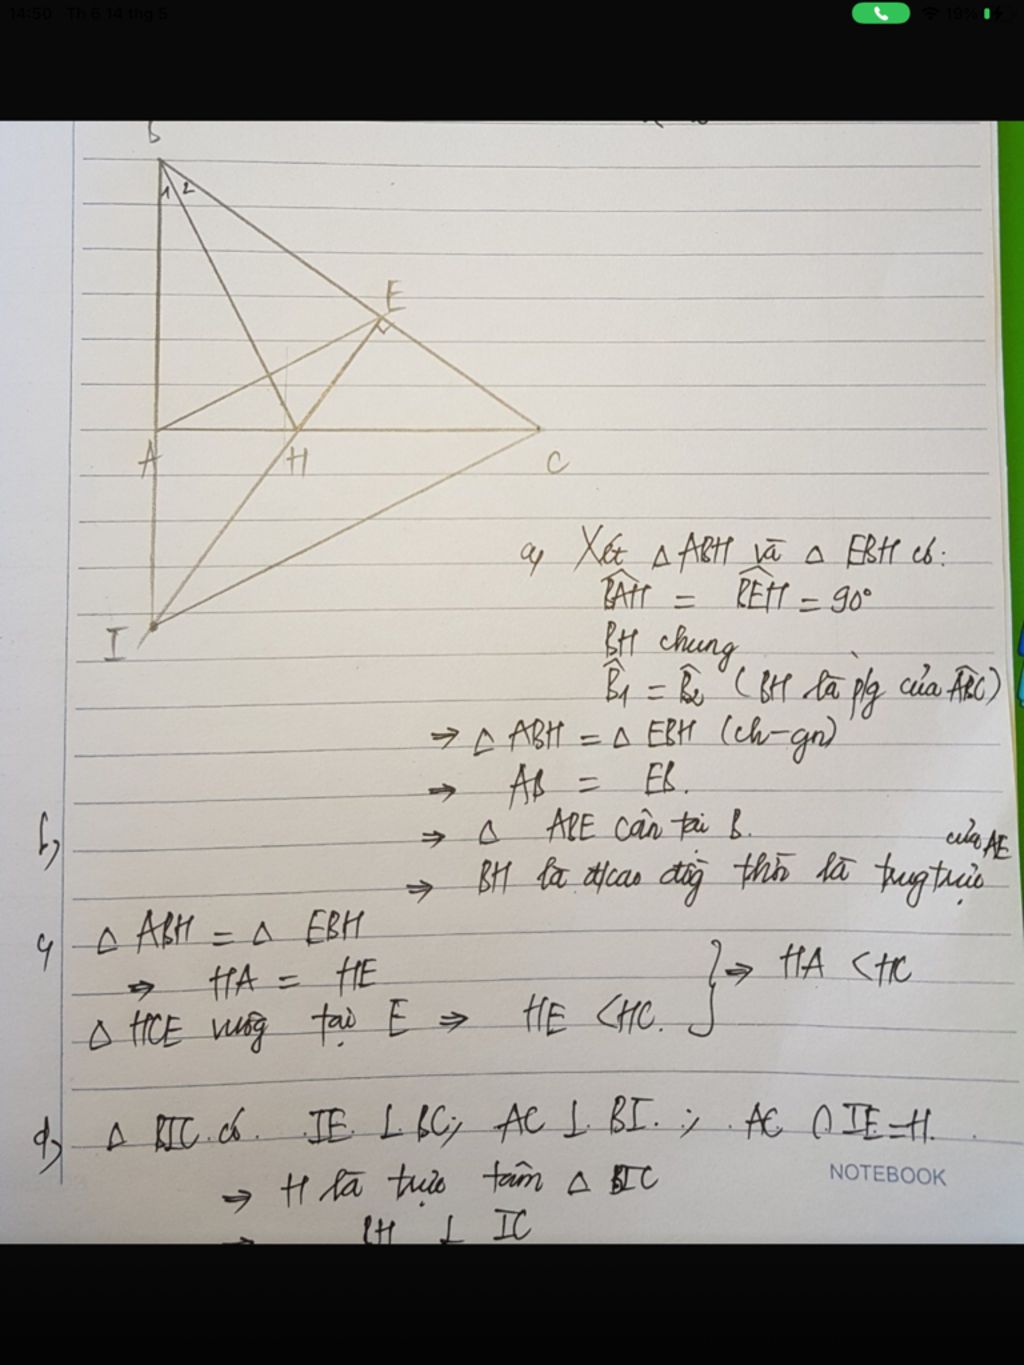 14:50 Th 6 14 thg 5
19%
B
1 2
E
A
H
C
I
a, Xét △ ABH và △ EBH có:
BAH = BEH = 90°
BH chung
B̂1 = B̂2 (BH là p/g của ABC)
⇒ △ ABH = △ EBH (ch-gn)
⇒ AB = EB.
b, ⇒ △ ABE cân tại B.
của AE
⇒ BH là đ/cao đồg thời là trug trực
c, △ ABH = △ EBH
⇒ HA = HE
} ⇒ HA < HC
△ HCE vuôg tại E ⇒ HE < HC.
d, △ BIC có IE ⊥ BC; AC ⊥ BI.; AC ∩ IE = H.
NOTEBOOK
⇒ H là trực tâm △ BIC
⇒ BH ⊥ IC